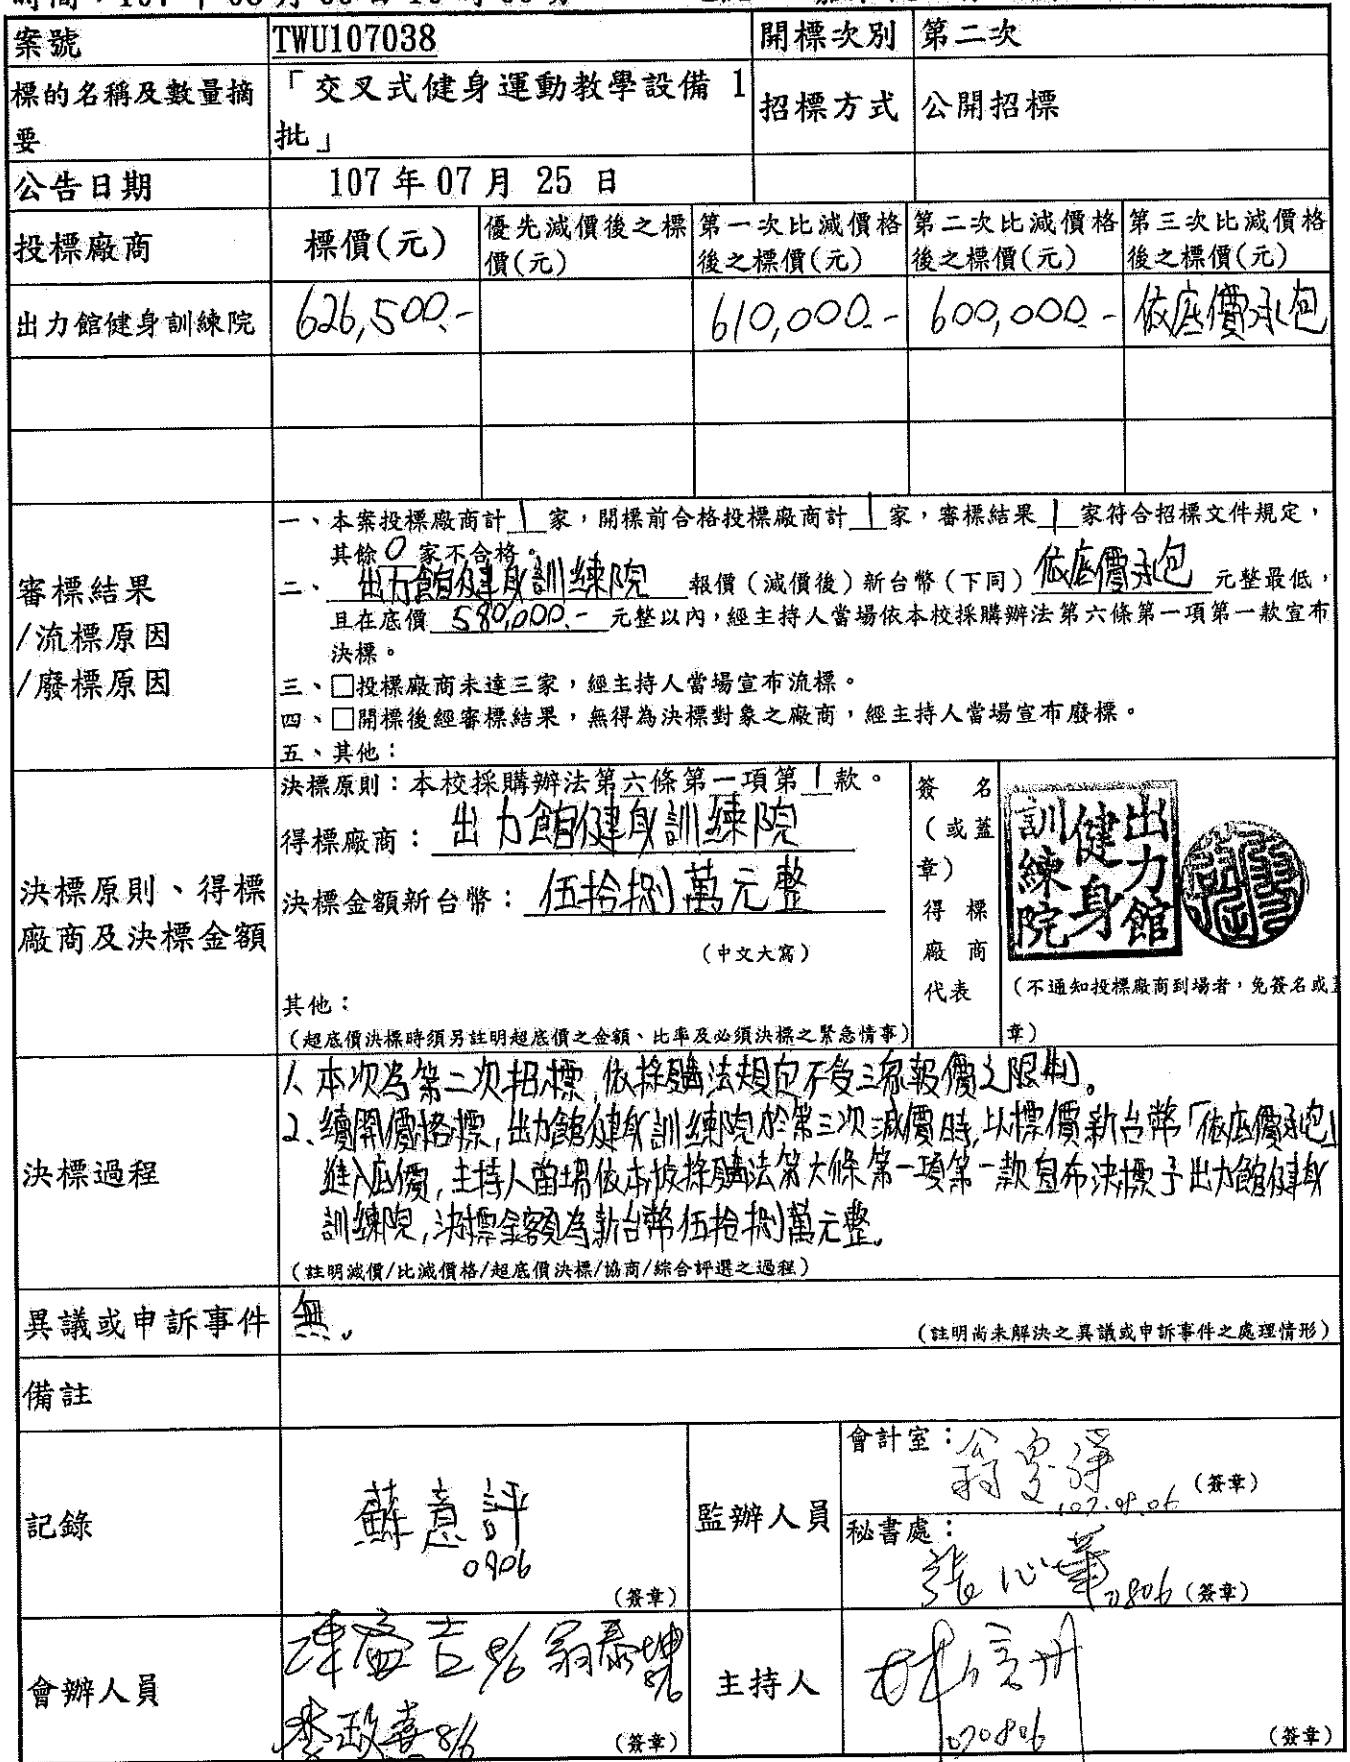 案號 TWU107038 開標次別 第二次
標的名稱及數量摘要 「交叉式健身運動教學設備 1批」 招標方式 公開招標
公告日期 107年07月 25 日
投標廠商 標價(元) 優先減價後之標價(元) 第一次比減價格後之標價(元) 第二次比減價格後之標價(元) 第三次比減價格後之標價(元)
出力館健身訓練院 626,500.- 610,000.- 600,000.- 依底價承包
審標結果
/流標原因
/廢標原因
一、本案投標廠商計 1 家,開標前合格投標廠商計 1 家,審標結果 1 家符合招標文件規定,
其餘 0 家不合格。
二、 出力館健身訓練院 報價(減價後)新台幣(下同) 依底價承包 元整最低,
且在底價 580,000.- 元整以內,經主持人當場依本校採購辦法第六條第一項第一款宣布
決標。
三、□投標廠商未達三家,經主持人當場宣布流標。
四、□開標後經審標結果,無得為決標對象之廠商,經主持人當場宣布廢標。
五、其他:
決標原則、得標
廠商及決標金額
決標原則:本校採購辦法第六條第一項第 1 款。
得標廠商: 出力館健身訓練院
決標金額新台幣: 伍拾捌萬元整
(中文大寫)
其他:
(超底價決標時須另註明超底價之金額、比率及必須決標之緊急情事)
簽名
(或蓋
章)
得標
廠商
代表
出力館
健身
訓練院
(不通知投標廠商到場者,免簽名或蓋
章)
決標過程
1. 本次為第二次招標,依採購法規定不受三家報價之限制。
2. 續開價格標,出力館健身訓練院於第三次減價時,以標價新台幣「依底價承包」
進入底價,主持人當場依本校採購法第六條第一項第一款宣布決標予出力館健身
訓練院,決標金額為新台幣伍拾捌萬元整。
(註明減價/比減價格/超底價決標/協商/綜合評選之過程)
異議或申訴事件 無。
(註明尚未解決之異議或申訴事件之處理情形)
備註
記錄 蘇意評
0806
(簽章)
監辦人員
會計室:
107.08.06 (簽章)
秘書處:
張心華 0806 (簽章)
會辦人員
8/6 翁泰 8/6
李政 8/6 (簽章)
主持人
070806 (簽章)